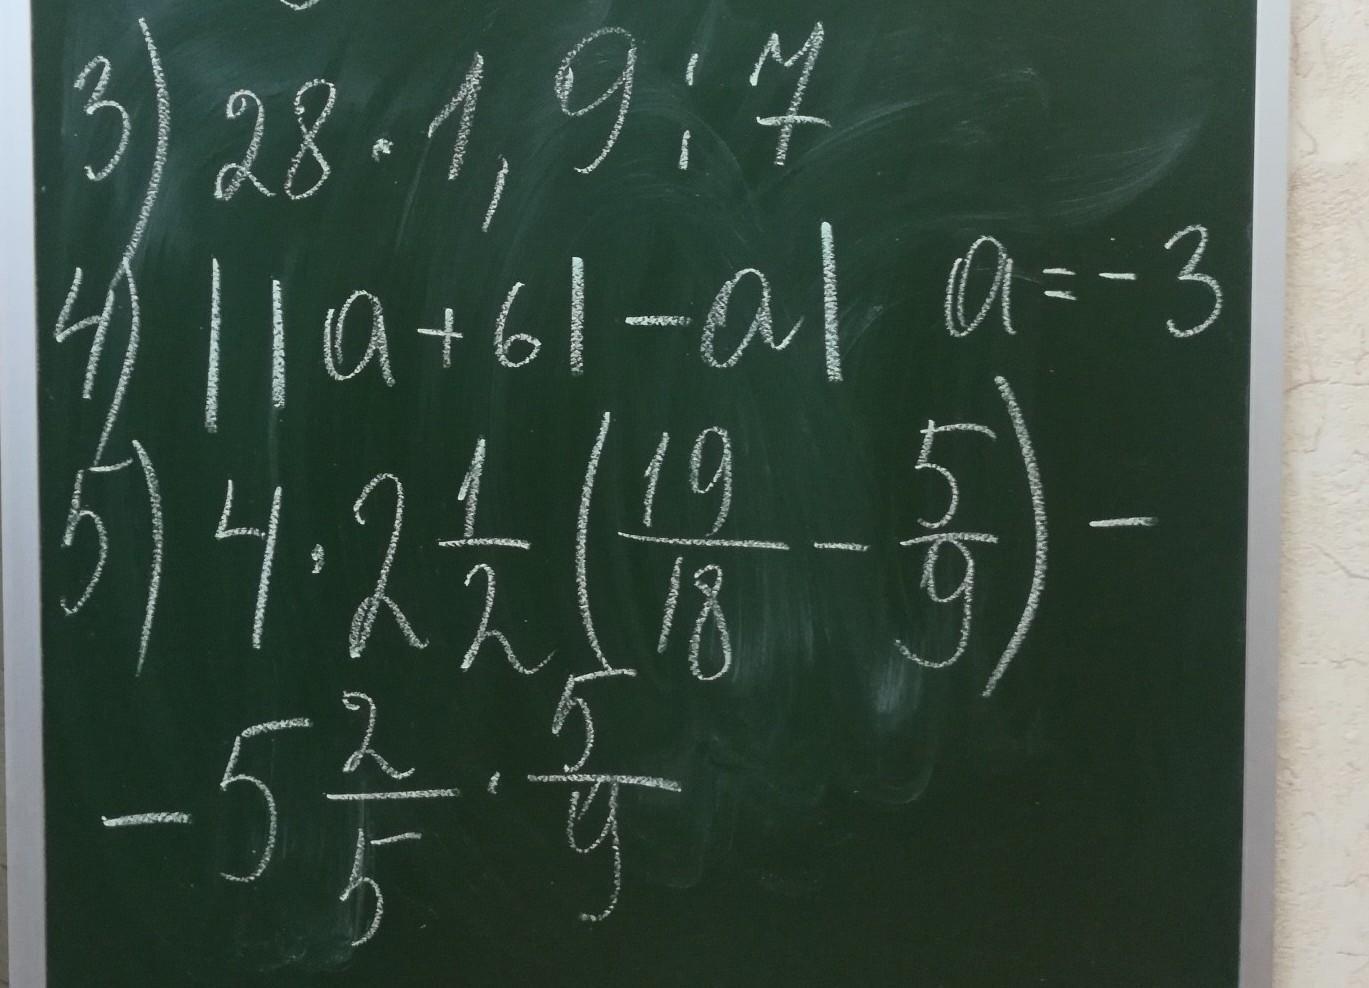 3) 28 · 1,9 : 7
4) ||a + 6| - a| a = - 3
5) 4 · 2 1/2 (19/18 - 5/9) -
- 5 2/5 · 5/9